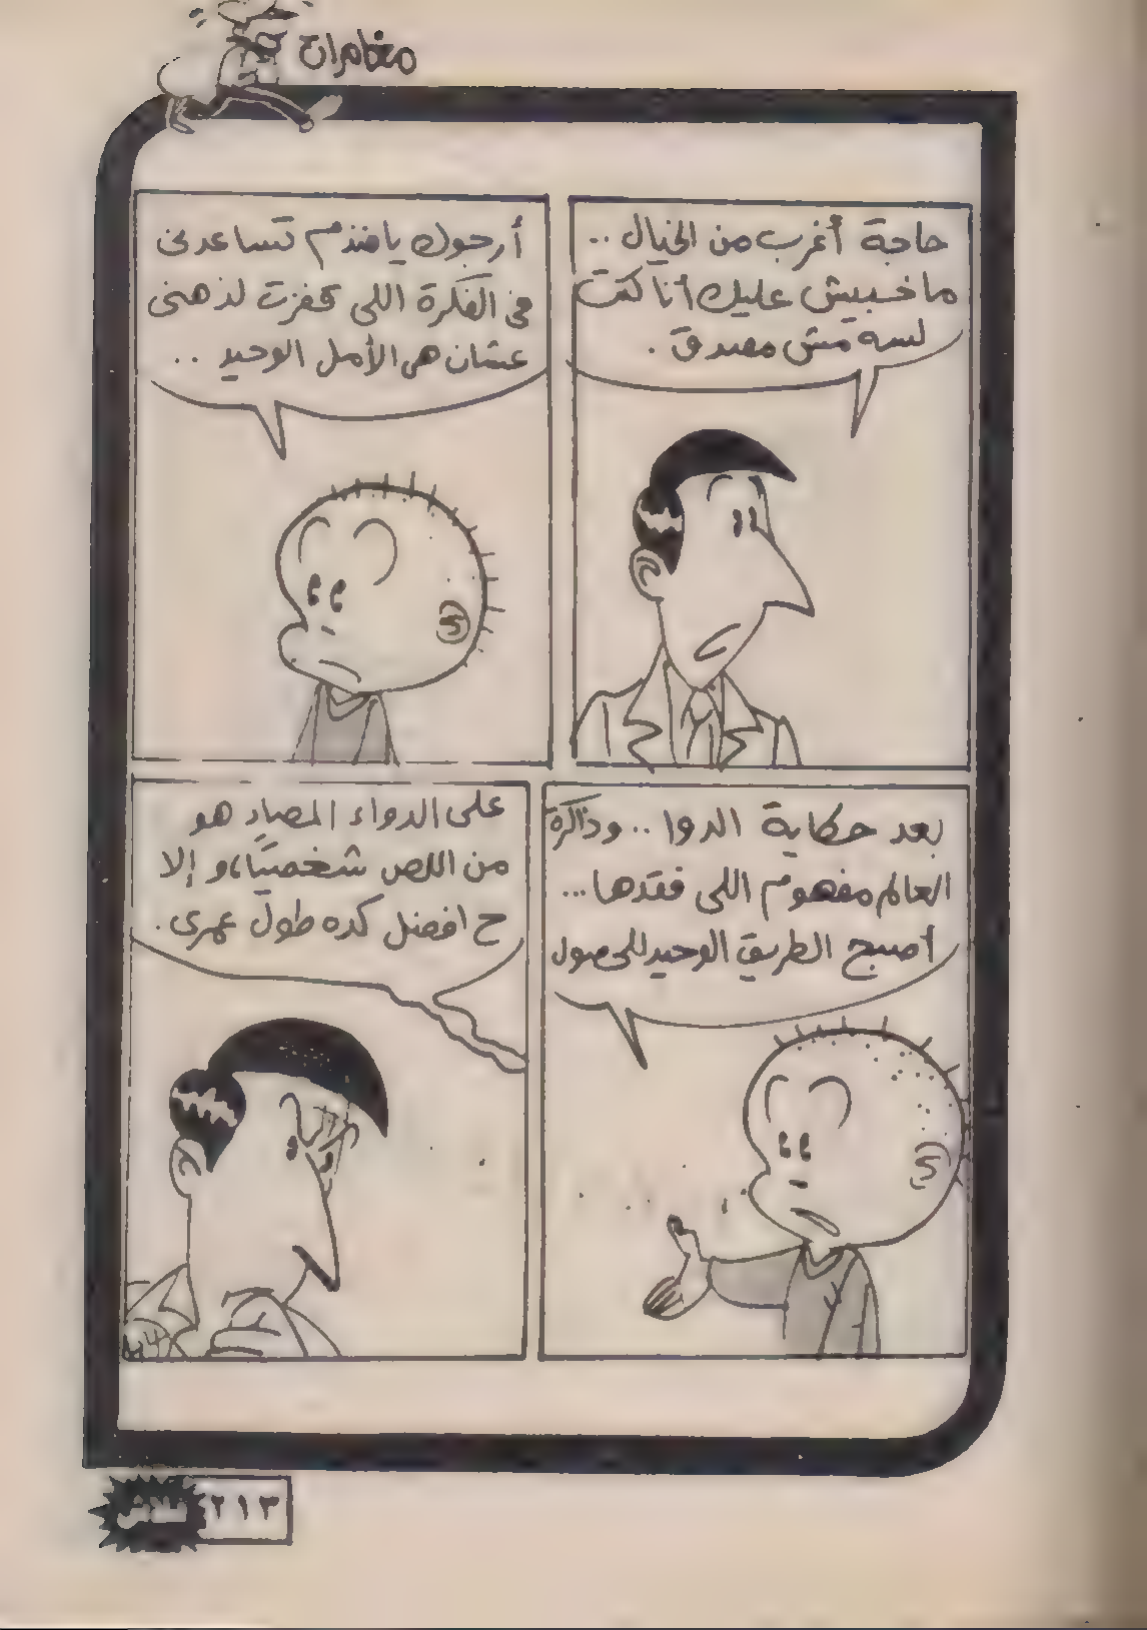 مغامرات
حاجة أغرب من الخيال ..
ماخبيش عليك أنا كنت
لسه مش مصدق .
أرجوك يافندم تساعدنى
فى الفكرة اللى قفزت لذهنى
عشان هى الأمل الوحيد ..
بعد حكاية الدوا .. وذاكرة
العالم مفهوم اللى فقدها ...
أصبح الطريق الوحيد للحصول
على الدواء المضاد هو
من اللص شخصيًا، و إلا
ح افضل كده طول عمرى .
٢١٣
فلاش